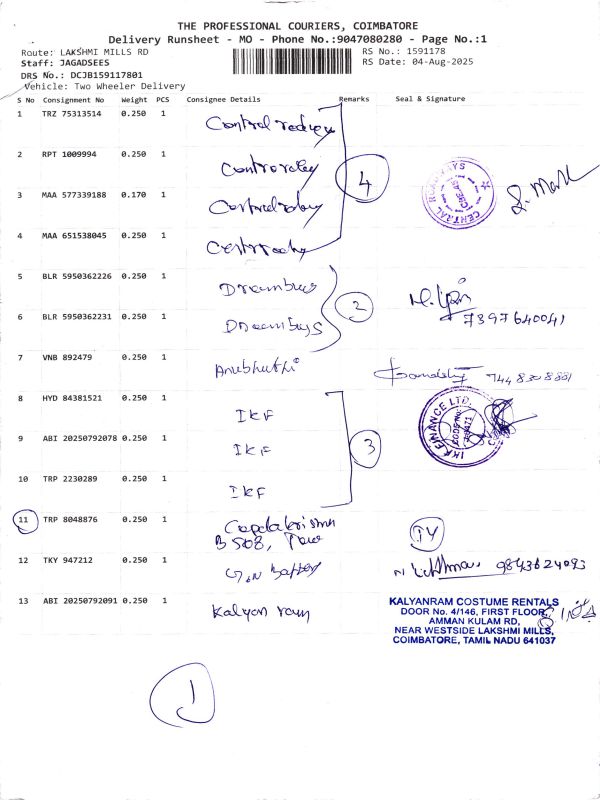 THE PROFESSIONAL COURIERS, COIMBATORE
Delivery Runsheet - MO - Phone No.:9047080280 - Page No.:1
Route: LAKSHMI MILLS RD RS No.: 1591178
Staff: JAGADSEES RS Date: 04-Aug-2025
DRS No.: DCJB159117801
Vehicle: Two Wheeler Delivery
S No Consignment No Weight PCS Consignee Details Remarks Seal & Signature
1 TRZ 75313514 0.250 1
2 RPT 1009994 0.250 1
3 MAA 577339188 0.170 1
4
CENTRAL ROADWAYS
4 MAA 651538045 0.250 1
5 BLR 5950362226 0.250 1
2
6 BLR 5950362231 0.250 1
7397640041
7 VNB 892479 0.250 1 Anubhuthi
7448308881
8 HYD 84381521 0.250 1 IKF
IKF FINANCE LTD.
CODE No.
9 ABI 20250792078 0.250 1 IKF
3
10 TRP 2230289 0.250 1 IKF
11 TRP 8048876 0.250 1
B 508,
12 TKY 947212 0.250 1 9843624093
13 ABI 20250792091 0.250 1 Kalyan ram
KALYANRAM COSTUME RENTALS
DOOR No. 4/146, FIRST FLOOR,
AMMAN KULAM RD,
NEAR WESTSIDE LAKSHMI MILLS,
COIMBATORE, TAMIL NADU 641037
1